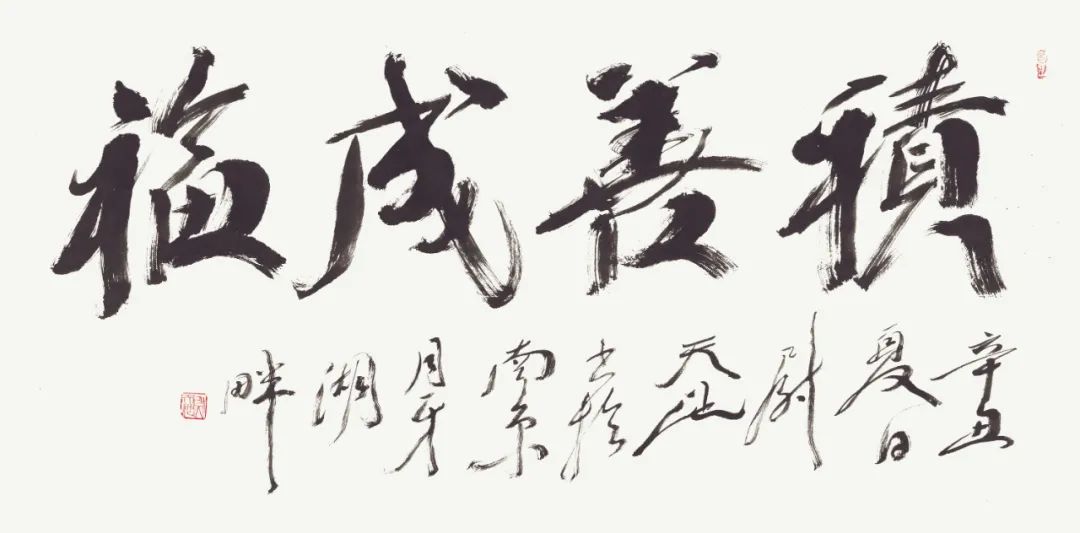 積善成福
辛丑
夏日
尉
天池
书於
南京
月牙
湖
畔